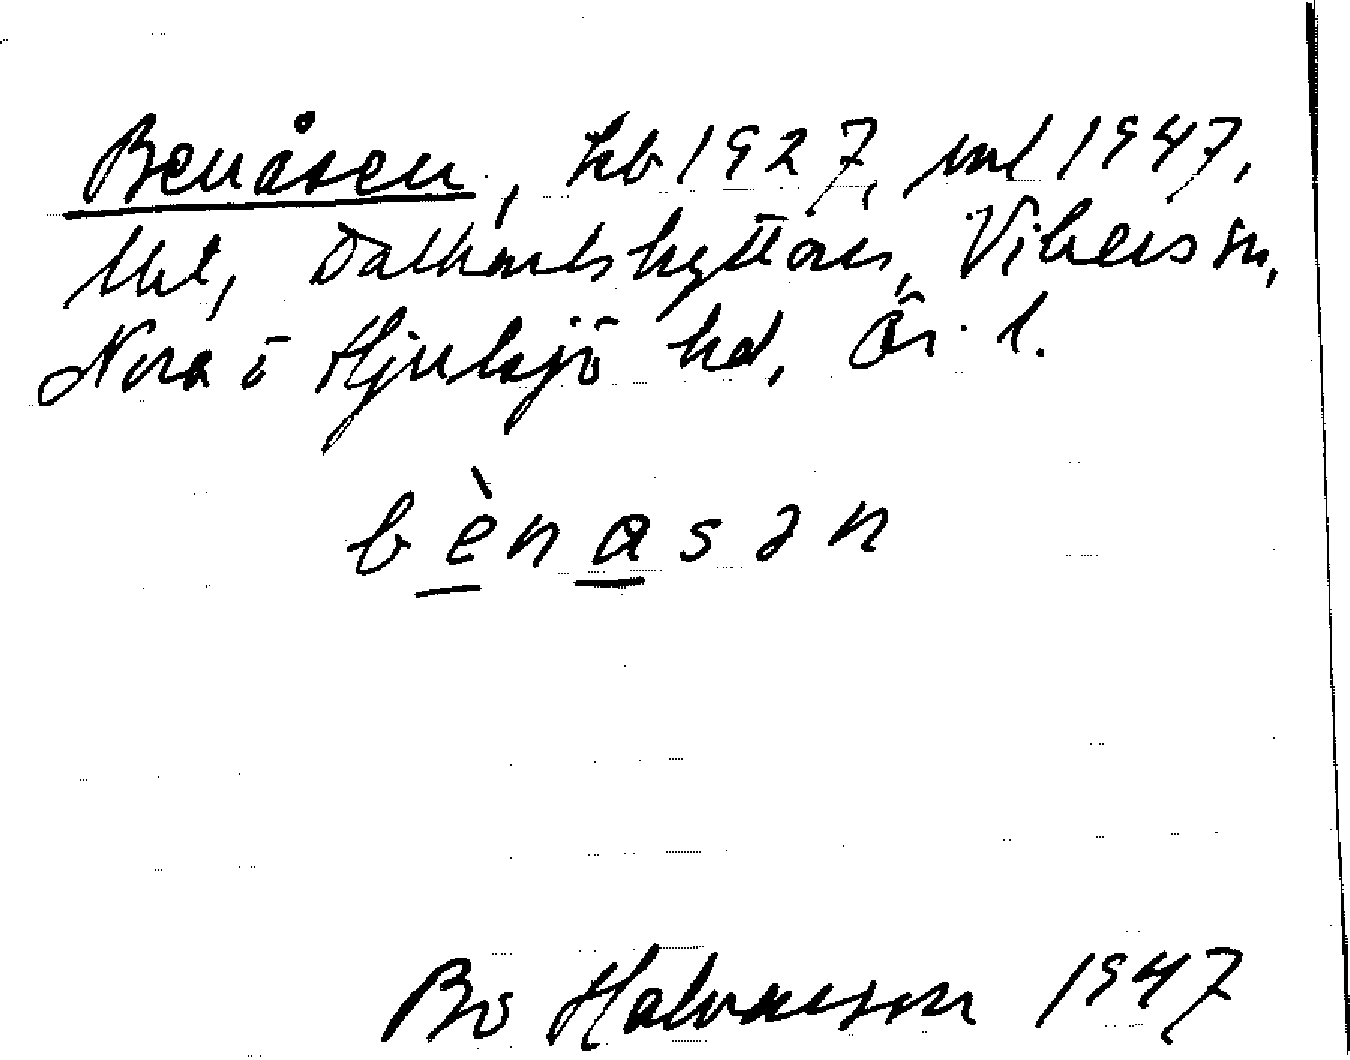 Benåsen, kb 1927, ml 1947,
Dalkarlshyttan, Vikers sn,
Nora o Hjulsjö hd, Ör. l.
bènasən
Bo Halvarsson 1947